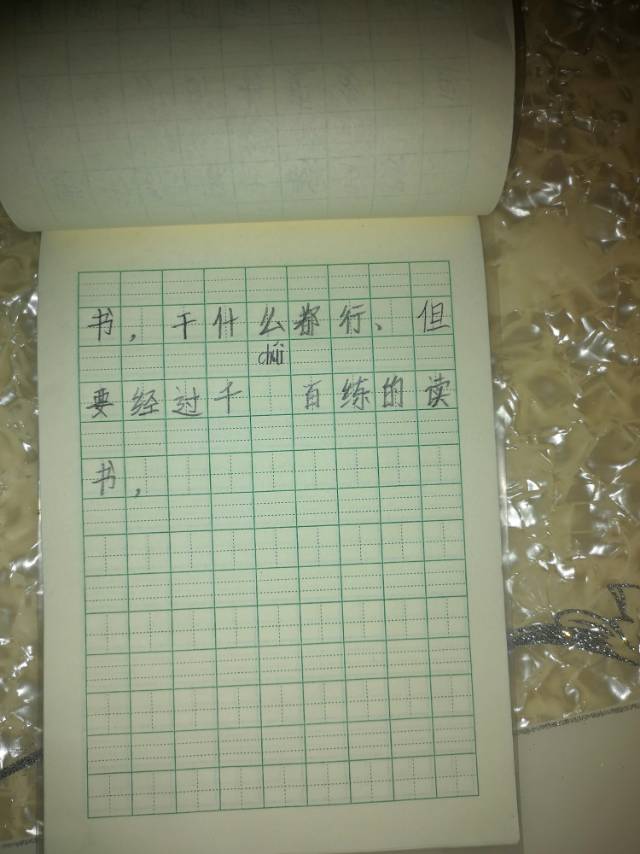 书，干什么都行、但
chúi
要经过千 百练的读
书，